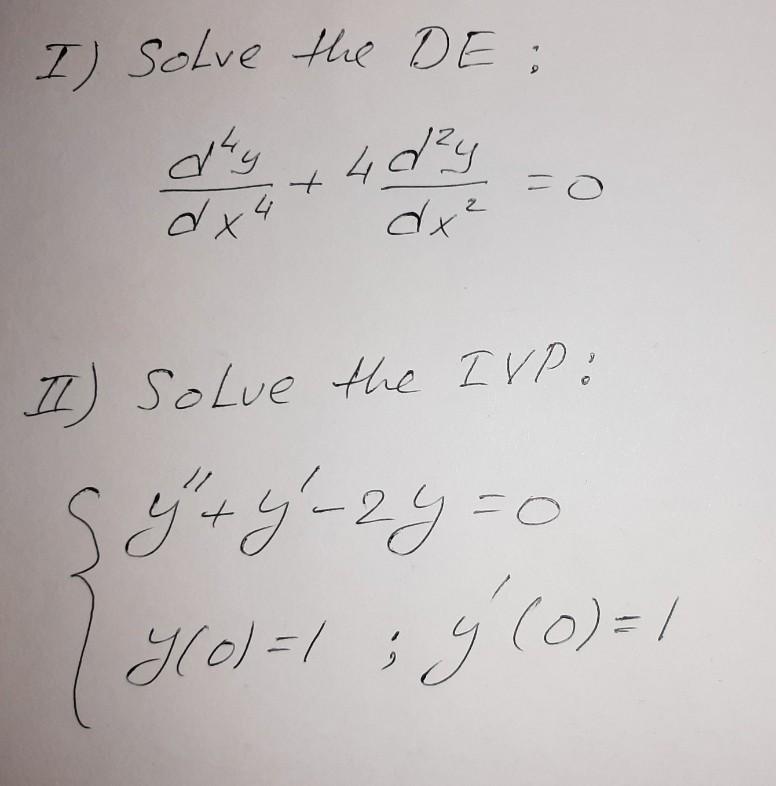 I) Solve the DE :
d⁴y/dx⁴ + 4 d²y/dx² = 0
II) Solve the IVP :
{ y'' + y' - 2y = 0
y(0) = 1 ; y'(0) = 1